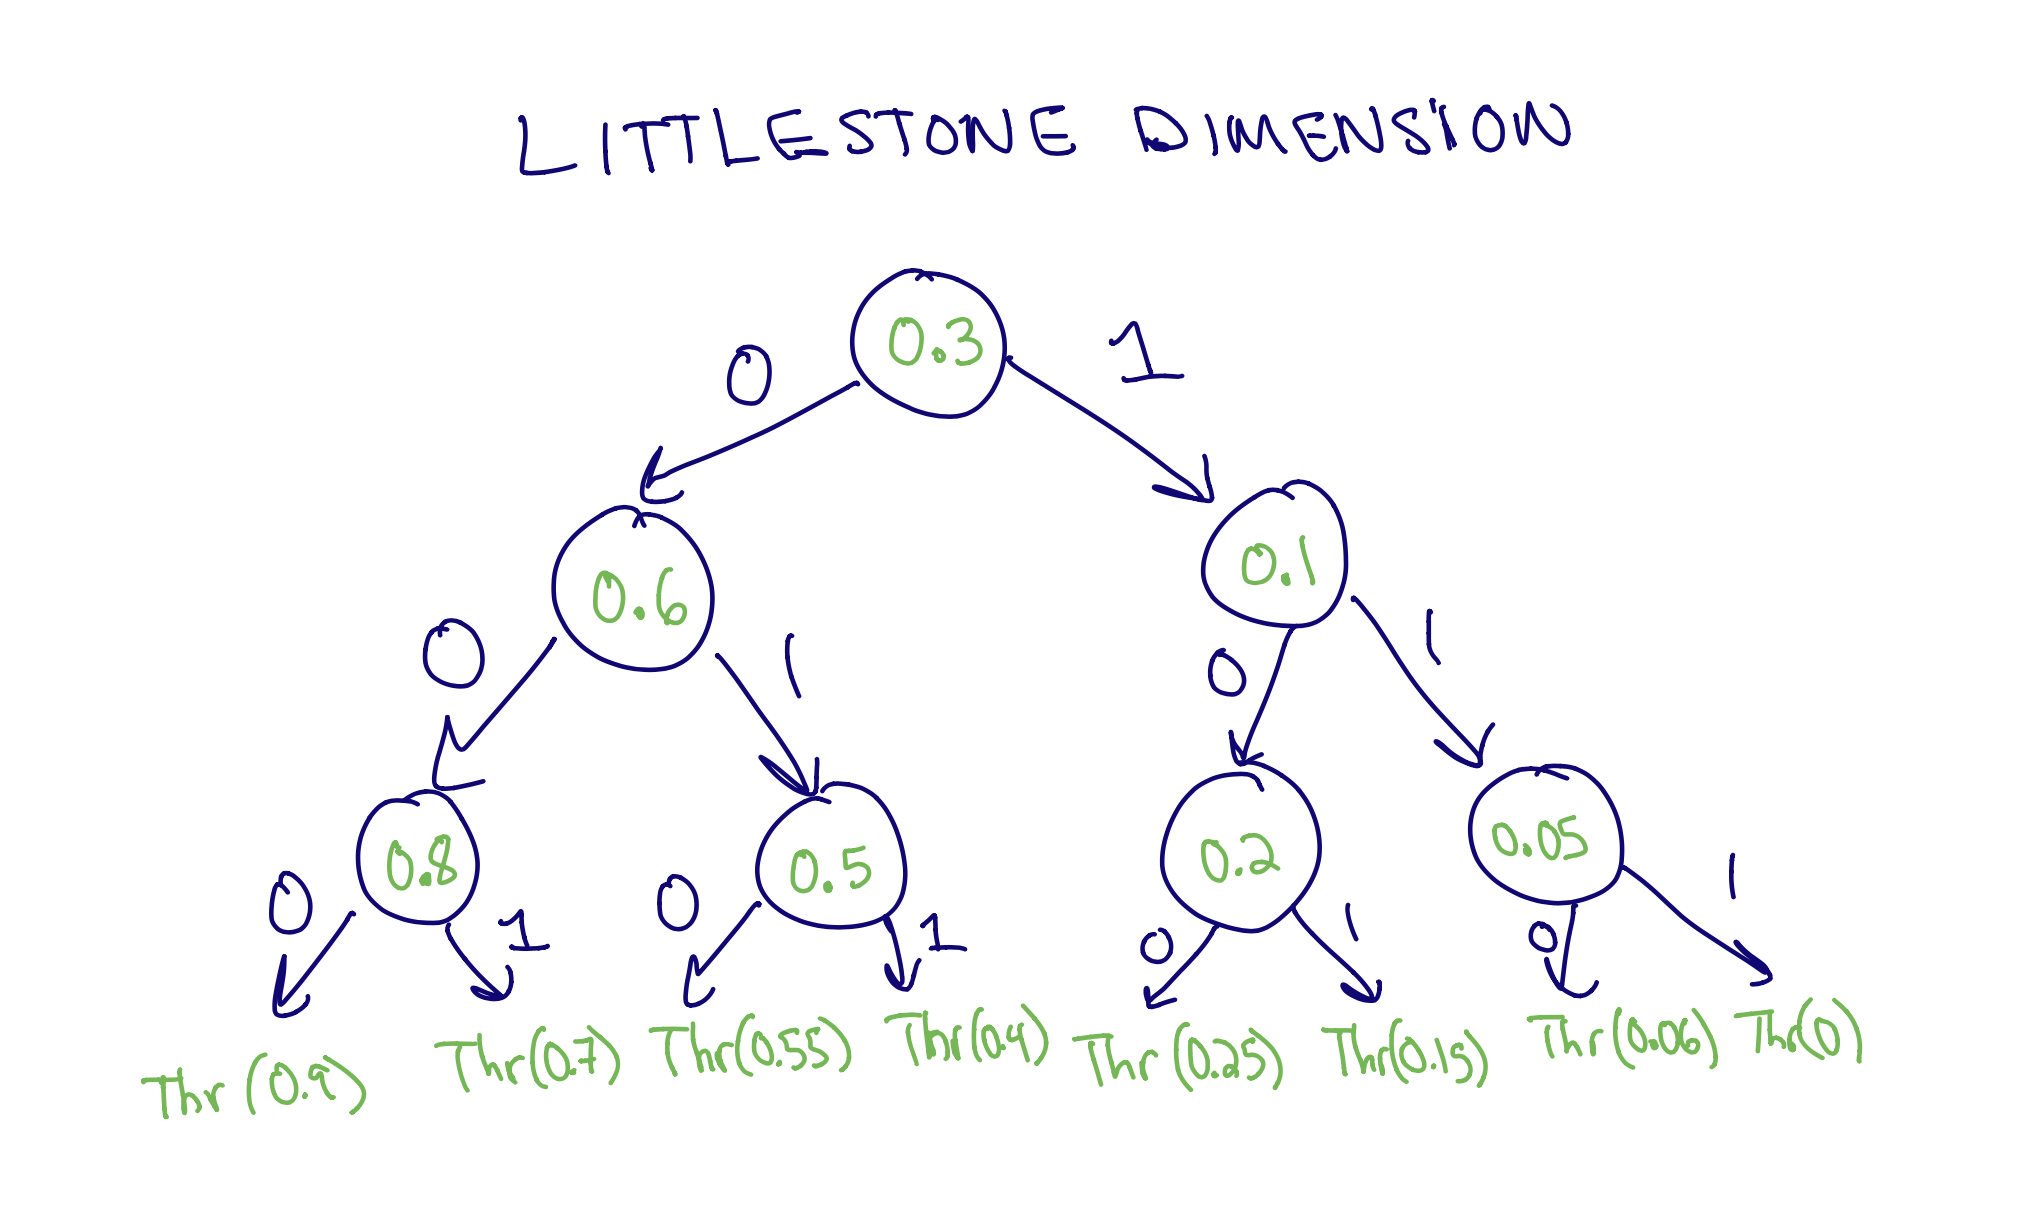 LITTLESTONE DIMENSION
0.3
0 1
0.6 0.1
0 1 0 1
0.8 0.5 0.2 0.05
0 1 0 1 0 1 0 1
Thr(0.9) Thr(0.7) Thr(0.55) Thr(0.4) Thr(0.25) Thr(0.15) Thr(0.06) Thr(0)